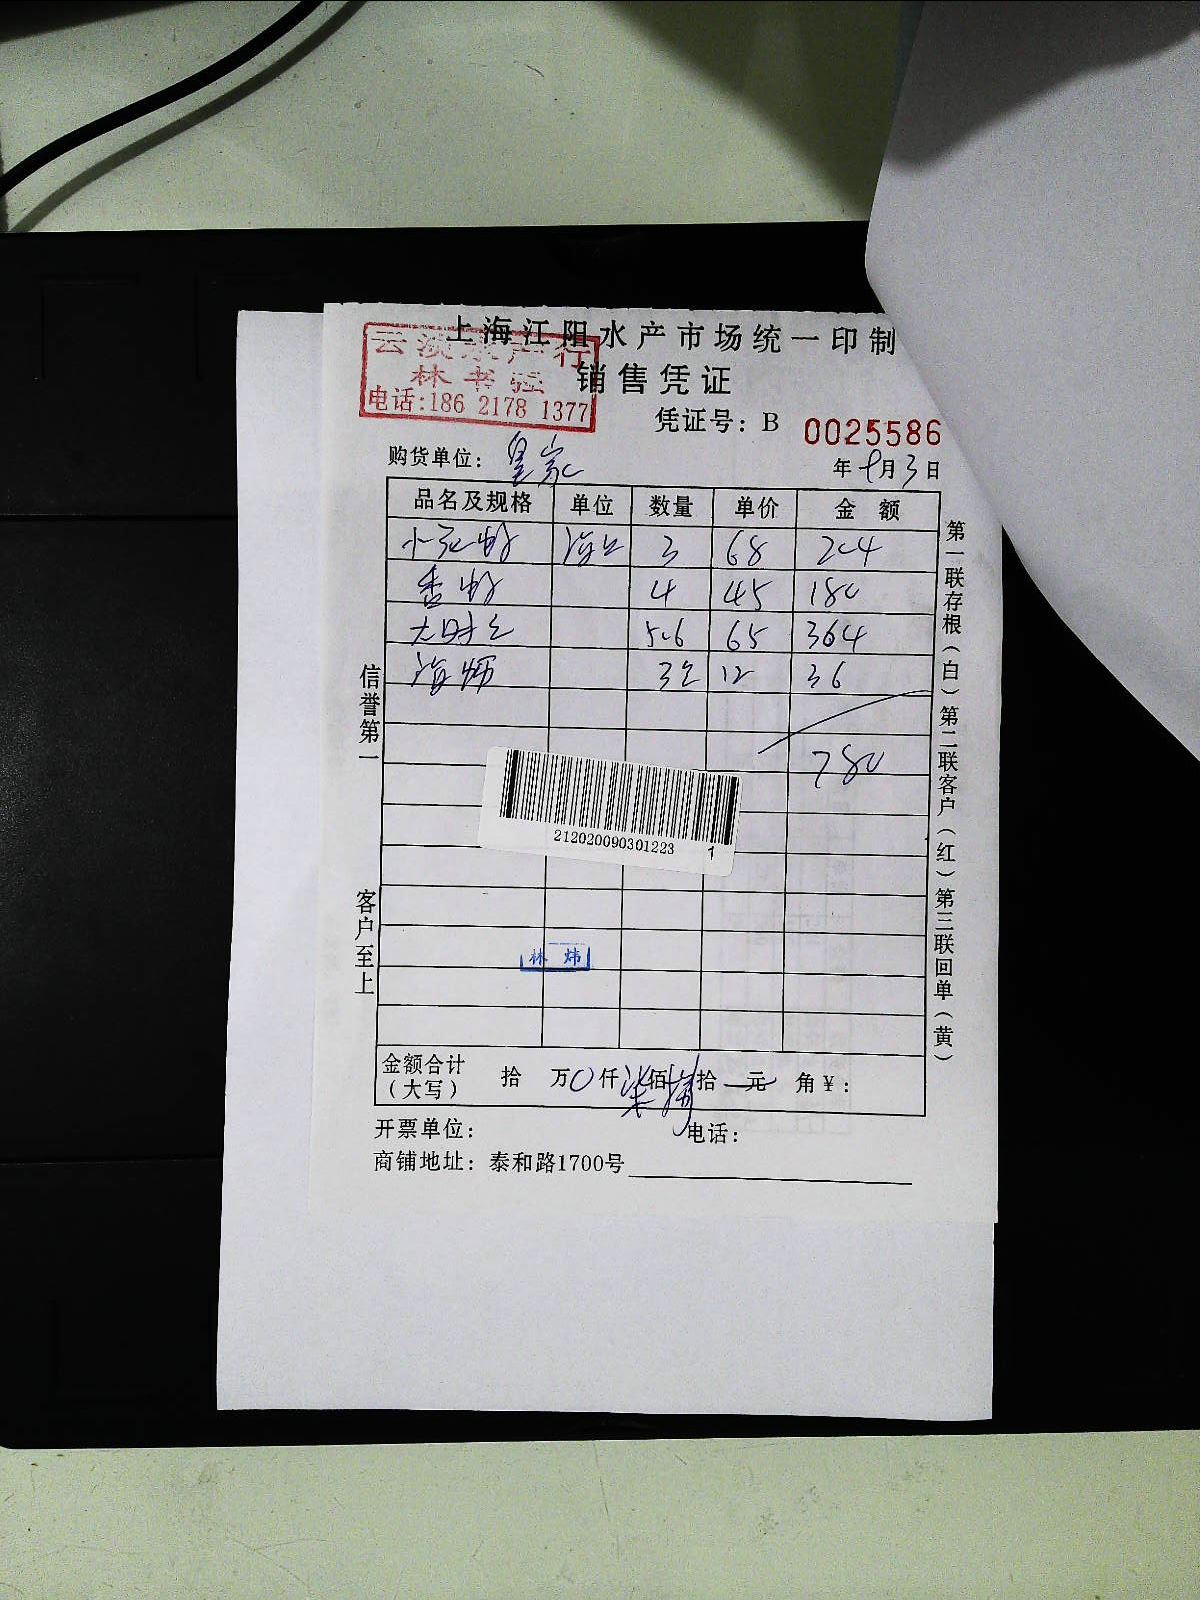 上海江阳水产市场统一印制
云淡水产行
林书
电话:186 2178 1377
销售凭证
凭证号: B 0025586
购货单位: 皇家
年 9月3日
品名及规格 单位 数量 单价 金额
小 3 68 204
香 4 45 180
5.6 65 364
海 3 12 36
780
212020090301223 1
林 炜
金额合计 拾 万0仟柒佰捌拾 元 角¥:
(大写)
开票单位: 电话:
商铺地址: 泰和路1700号
信誉第一
客户至上
第一联存根(白)第二联客户(红)第三联回单(黄)